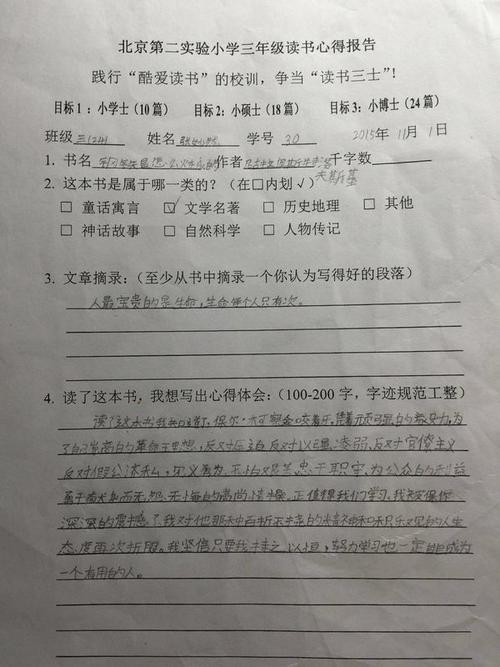 北京第二实验小学三年级读书心得报告
践行“酷爱读书”的校训，争当“读书三士”!
目标1：小学士(10篇) 目标2：小硕士(18篇) 目标3：小博士(24篇)
班级 三(24) 姓名 学号 30 2015年11月1日
1. 书名 作者 千字数
夫斯基
2. 这本书是属于哪一类的？(在□内划√)
□ 童话寓言 ☑ 文学名著 □ 历史地理 □ 其他
□ 神话故事 □ 自然科学 □ 人物传记
3. 文章摘录：(至少从书中摘录一个你认为写得好的段落)
人最宝贵的是生命，生命每个人只有次。
4. 读了这本书，我想写出心得体会：(100-200字，字迹规范工整)
读了这本书我知道了，保尔·柯察金
为
了自己崇高的革命理想，反对压迫反对以强凌弱、反对官僚主义
反对假公济私，见义勇为，不怕艰苦忠于职守，为公众的利益
勇于献身而无怨无悔的高尚情操。正值得我们学习。我被保尔
深深的震撼了，我对他那种百折不挠的精神和积乐观的人生
态度再次折服。我坚信只要我持之以恒，努力学习也一定能成为
一个有用的人。